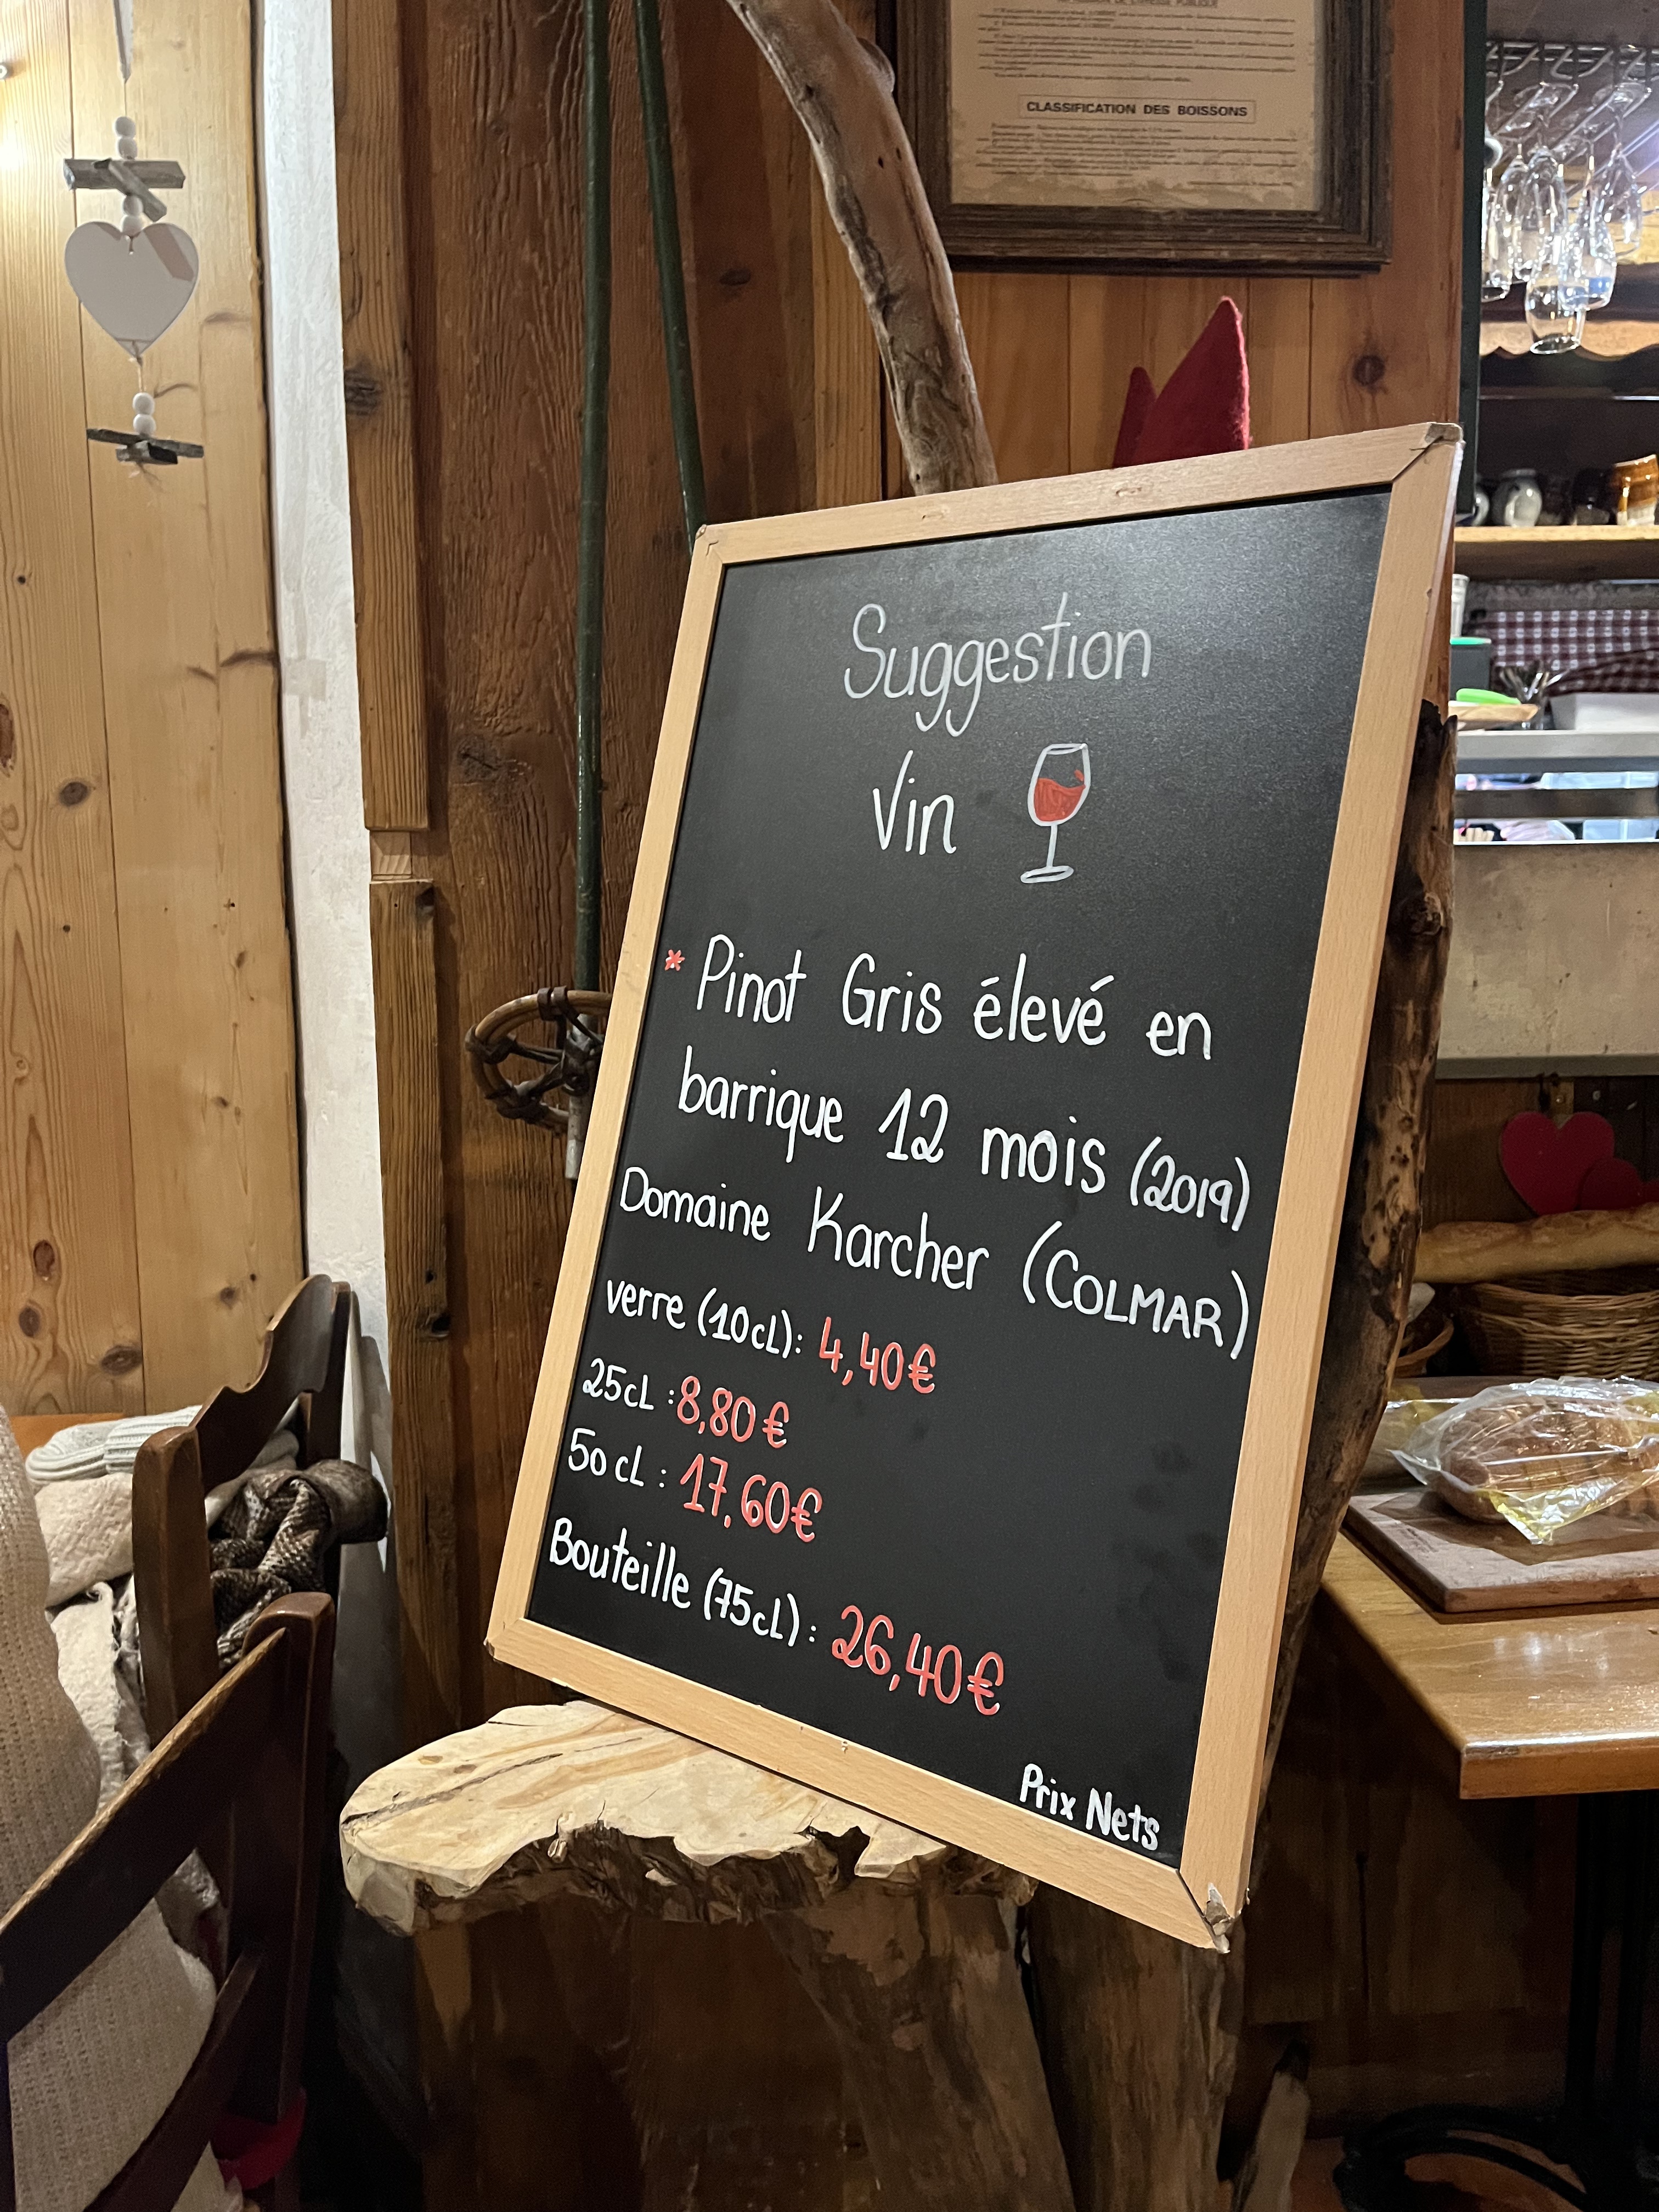 CLASSIFICATION DES BOISSONS
Suggestion
Vin
* Pinot Gris élevé en
barrique 12 mois (2019)
Domaine Karcher (COLMAR)
verre (10cL): 4,40€
25cL : 8,80€
50cL : 17,60€
Bouteille (75cL) : 26,40€
Prix Nets